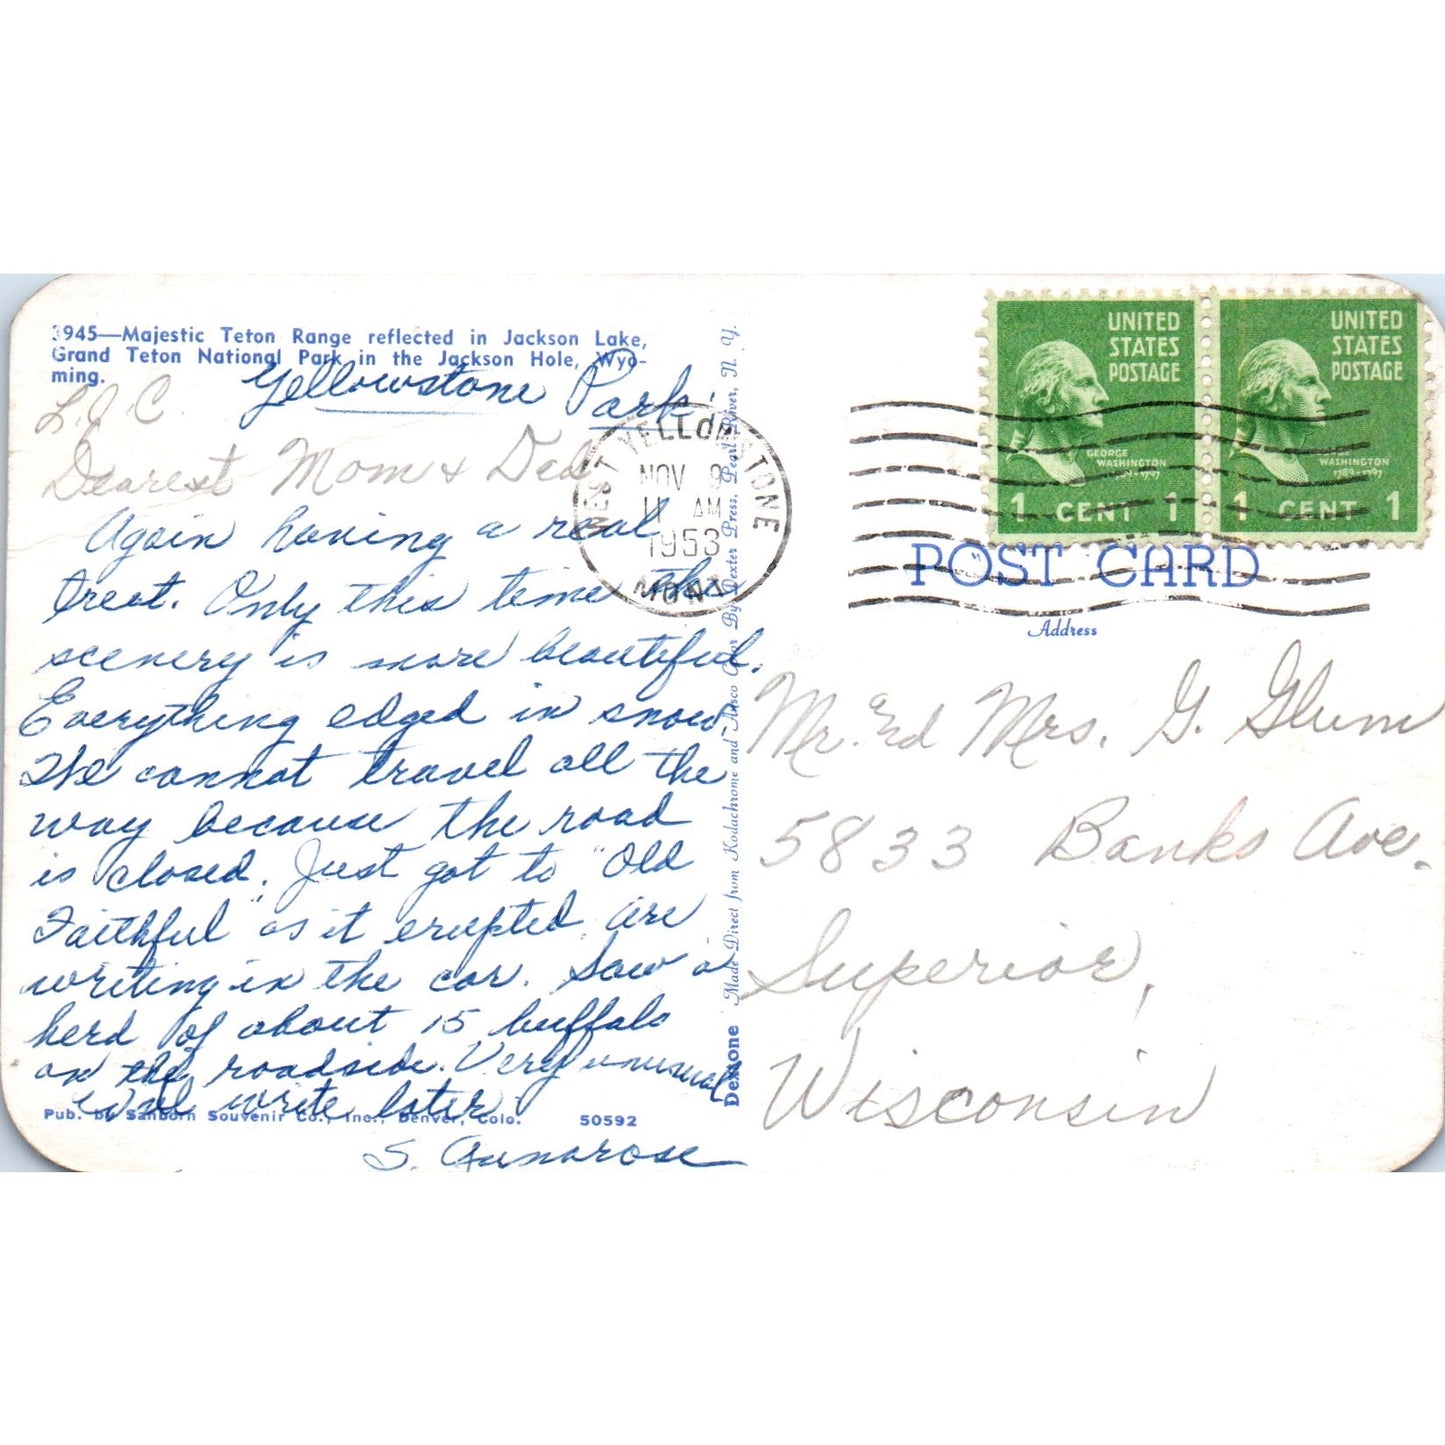 3945—Majestic Teton Range reflected in Jackson Lake,
Grand Teton National Park in the Jackson Hole, Wyo-
ming.
Yellowstone Park.
Dearest Mom & Dad
Again having a real
treat. Only this time the
scenery is more beautiful.
Everything edged in snow.
We cannot travel all the
way because the road
is closed. Just got to "Old
Faithful" as it erupted. are
writing in the car. Saw a
herd of about 15 buffalo
on the roadside. Very unusual
Will write later
Pub. by Sanborn Souvenir Co., Inc., Denver, Colo. 50592
Dextone Made Direct from Kodachrome and Ansco Color By Dexter Press, Pearl River, N. Y.
WEST YELLOWSTONE
NOV 9
11 AM
1953
MONT
UNITED
STATES
POSTAGE
GEORGE
WASHINGTON
1789-1797
1 CENT 1
UNITED
STATES
POSTAGE
GEORGE
WASHINGTON
1789-1797
1 CENT 1
POST CARD
Address
Mr. Ed Mrs. G. Glum
5833 Banks Ave.
Superior,
Wisconsin